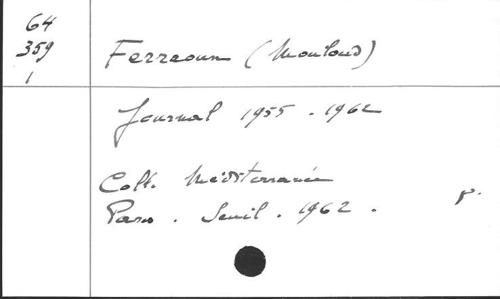 64
359
1
Ferraoun (Mouloud)
Journal 1955 - 1962
Coll. Méditerranée
Paris . Seuil . 1962 .
p.